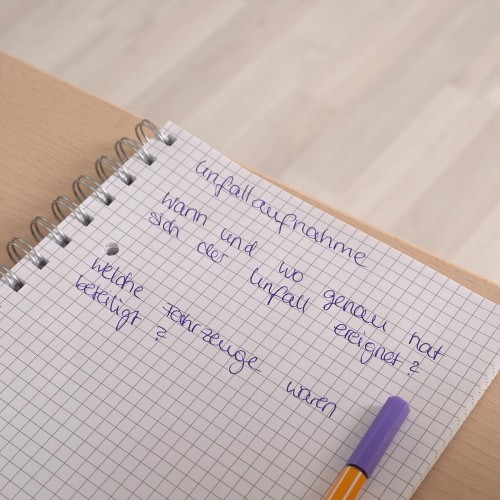 Unfallaufnahme
Wann und wo genau hat
sich der Unfall ereignet?
Welche Fahrzeuge waren
beteiligt?